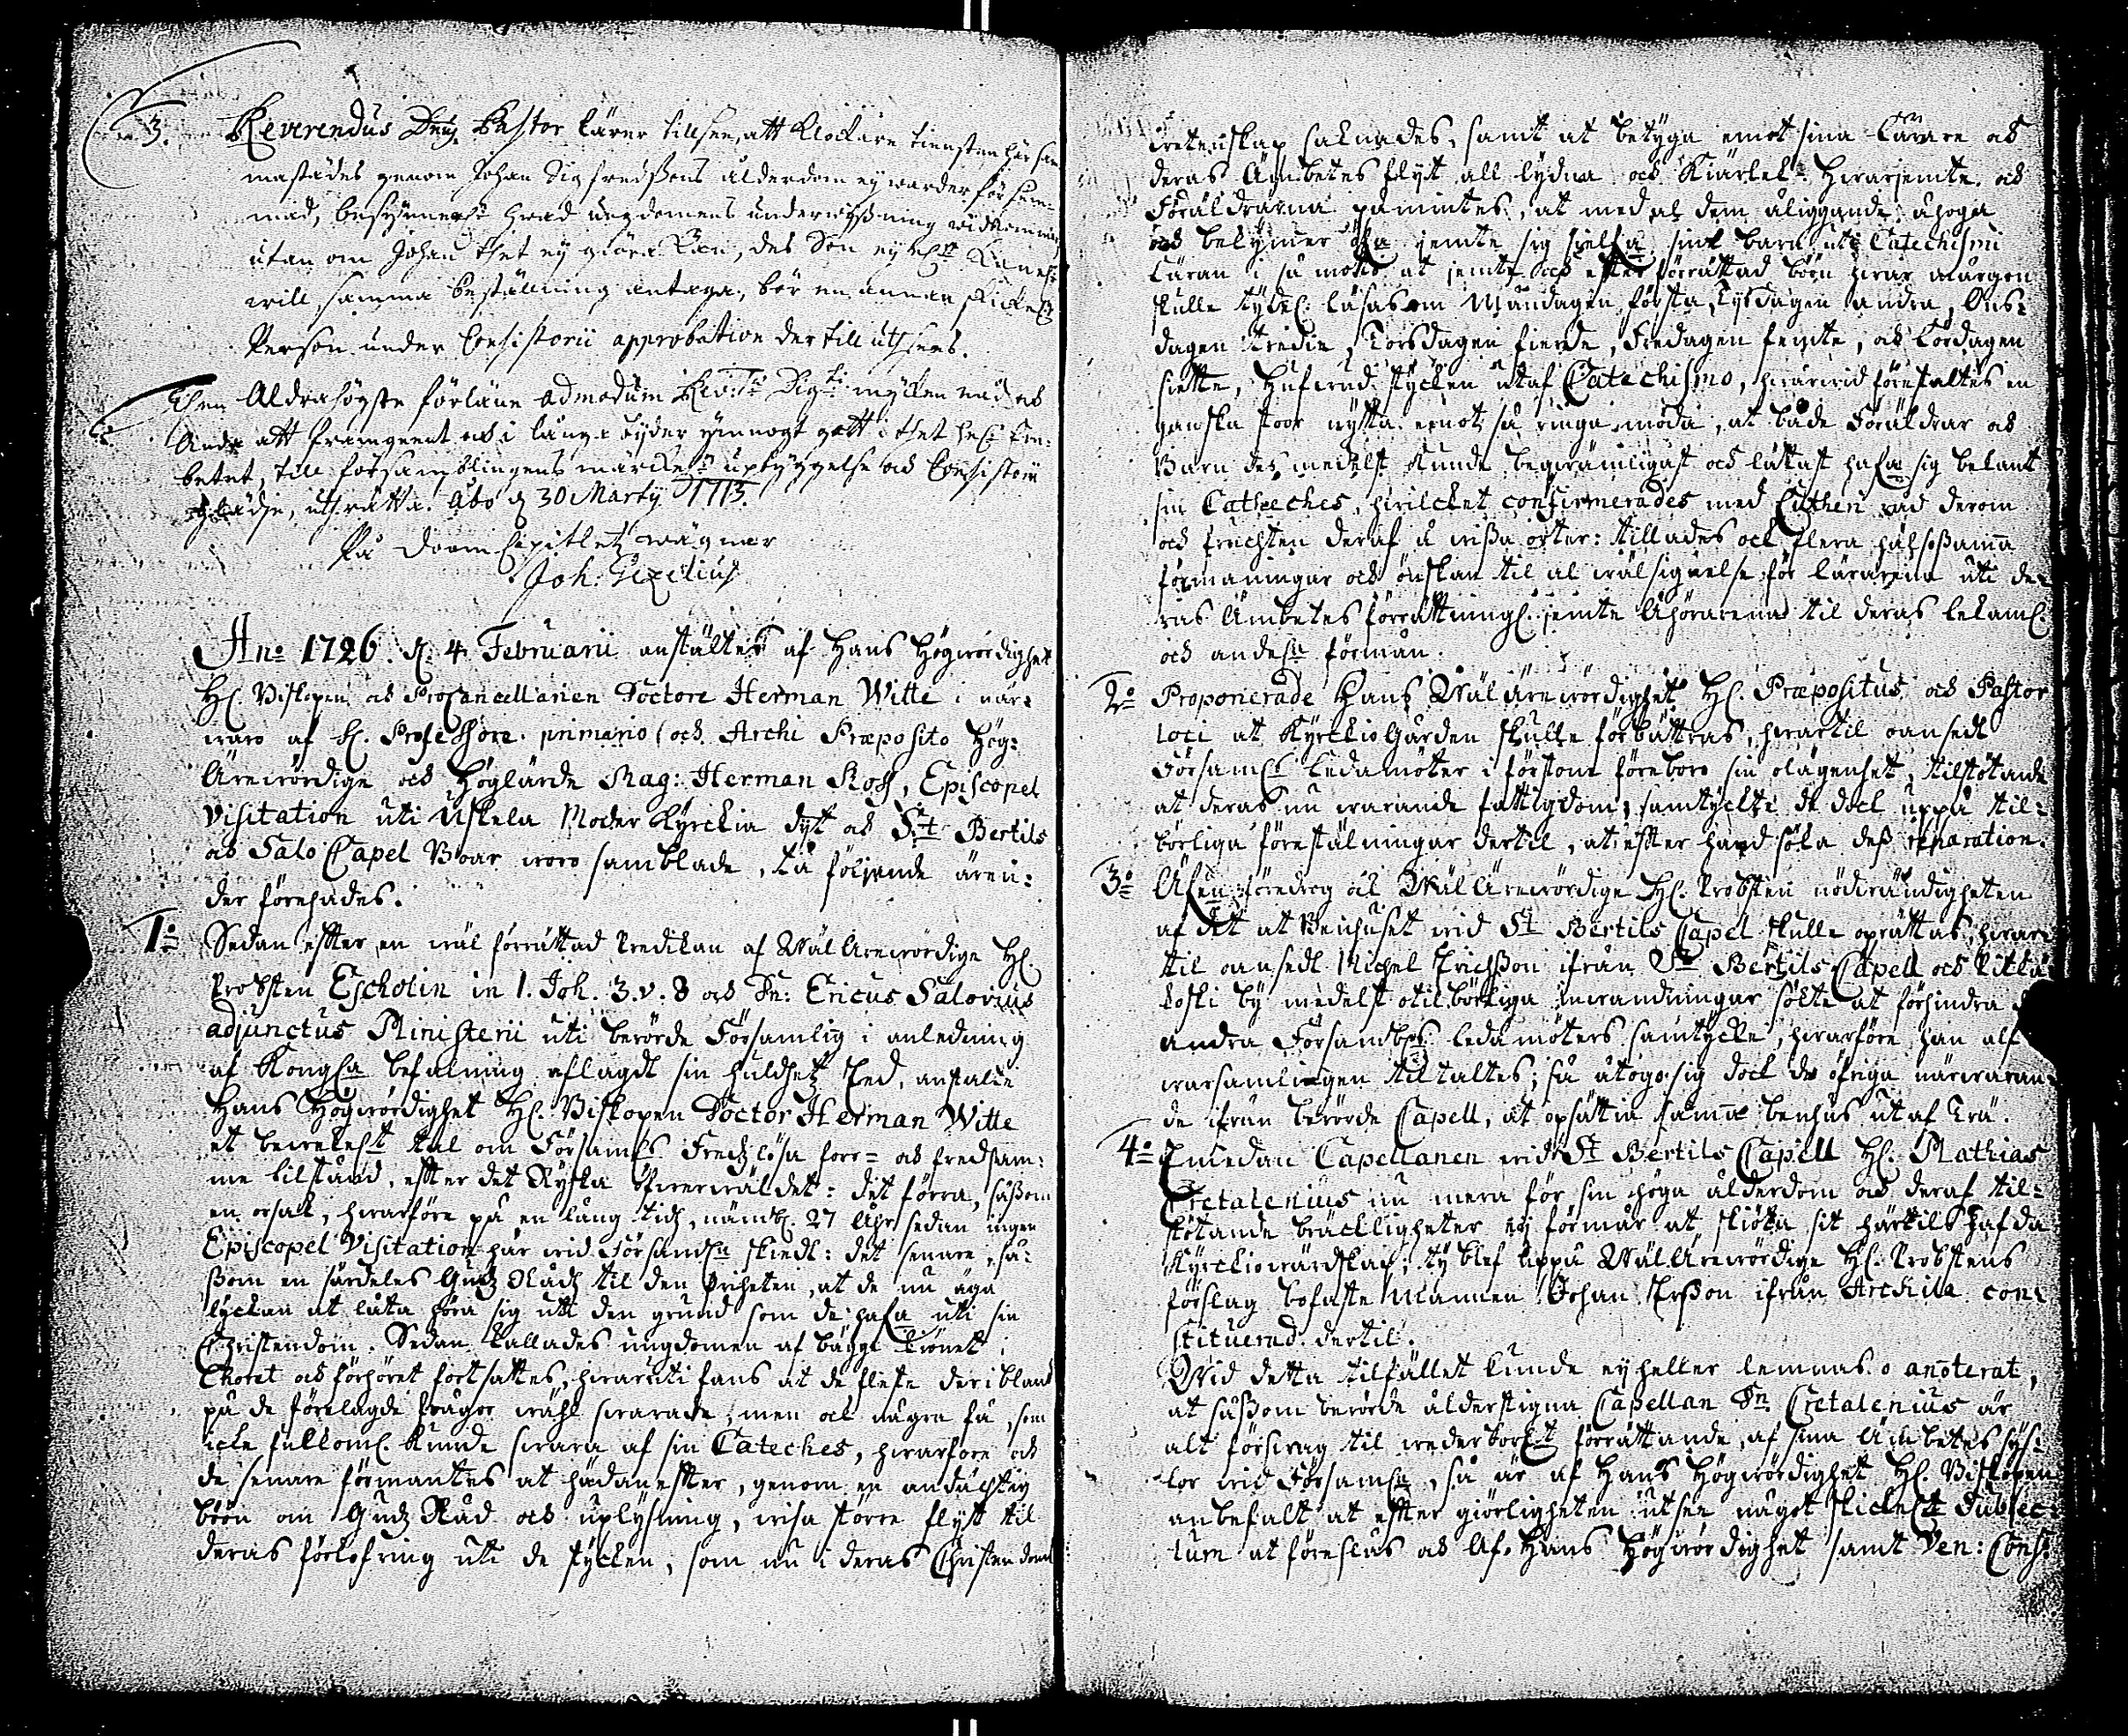 3. Reverendus Dnus Pastor lärer tillsee, att Klockare tiensten här sam-
mastädes genom Johan Sigfredssons ålderdom ey warder försum-
mad, besynnerl. hwad ungdomens underwijsning widkommer,
utan om Johan thet ey giöra kan, des Son ey heller kan el.
will, samma beställning antaga, bör en annan skickel.
Person under Consistorii approbation der till uthsees.
Then Aldrahögste förläne admodum Rev:da Dig:ti mycken nåd och
Anda att framgeent och i långa tijder ymnogt gott i thet hel. Em-
betet, till församblingens märckel. upbyggelse och Consistorii
glädje, uthrätta. Åbo d. 30 Martij 1713.
På Doom Capitletz wägnar
Joh: Gezelius
Ao 1726. d. 4 Februarii anstältes af Hans Högwördighet
H. Biskopen och ProCancellarien Doctore Herman Witte i när-
waro af H. Professore primario och Archi Præposito Hög-
Ärewördige och Höglärde Mag: Herman Ross, Episcopel
Visitation uti Uskela Moder Kyrckia dijt och St Bertils
och Salo Capel Boar woro samblade, då föliende ären-
der förehades.
1o Sedan effter en wäl förrättad Predikan af WälÄrewördige H.
Probsten Escholin in 1. Joh. 3. v. 8 och Dn: Ericus Salovius
adjunctus Ministerii uti berörde Församling i anledning
af Kongl. befalning aflagdt sin huldhetz Eed, anstalte
Hans Högwördighet H. Biskopen Doctor Herman Witte
et bewekel. tal om Församl. Fredzlösa forr- och fredsam-
me tilstånd, effter det Ryska öfwerwäldet: det förra, såsom
en orsak, hwarföre på en lång tidh, nämbl. 27 Åhr sedan ingen
Episcopel Visitation här wid Församl. skiedt: det senare så-
som en särdeles Gudz Nådh til den Friheten, at de nu äga
lyckan at låta höra sig utt den grund som de hafa uti sin
Christendom. Sedan kallades ungdomen af bägge kiönet i
Choret och förhöret fortsattes, hwaruti fans at de fleste deribland
på de förelagde frågor wähl swarade, men och några få, som
icke fullkoml. kunde swara af sin Cateches, hwarföre och
de senare förmantes at hädaneffter, genom en andächtig
böön om Gudz Nåd och uplysning, wisa större flijt til
deras förkofring uti de stycken, som nu i deras Christendoms
wetenskap saknades, samt at betyga emot sina Lärare och
deras Ämbetes flijt all lydna och Kiärlek. Hwarjemte och
Föräldrarna påmintes, at med al dem åliggande åhoga
och bekymer öfa jemte sig sielfa sine barn uti Catechismi
Läran i så motto at jemte och effter förrättad böön hwar morgon
skulle tydel. läsas om Mondagen första, Tysdagen andra, Ons-
dagen tredie, Torsdagen fierde, Fredagen femte, och Lördagen
siette, Hufwud stycken utaf Catechismo, hwarwid förestaltes en
ganska stoor nytta emot så ringa möda, at både Föräldrar och
Barn des medelst kunde begwämligast och lättast hafa sig bekant
sin Catheches, hwilcket confirmerades med Lutheri råd derom
och fruchten deraf å wissa orter: tillades och flera hälsosamma
förmaningar och önskan til al wälsignelse för Lärarena uti de-
ras Ämbetes förrättning. jemte Åhörarena til deras lekaml.
och andel. förmån.
2o Proponerade Hans WälÄrewördighet H. Præpositus och Pastor
loci at Kyrckio Gården skulle förbättras, hwartil oansedt
Församl. ledamöter i förstone förebaro sin olägenhet, tilstötande
at deras nu warande fattigdom, samtyckte de dock uppå til-
börliga förestälningar dertil, at effter hand söka dess reparation.
3o Äfwen föredrog och WälÄrewördige H. Probsten nödwändigheten
af det at Benhuset wid St Bertils Capel skulle oprättas, hwar-
til oansedt Michel Erichsson ifrån St Bertils Capell och Pitkä
koski by medelst otilbörliga inwändningar sökte at förhindra
andra Församb. ledamöters samtycke, hwarföre han alf
warsamligen tiltaltes; så åtogo sig dock de öfriga närwaran-
de ifrån berörde Capell, at opsättia samma benhus ut af Trä.
4o Emedan Capellanen wid St Bertils Capell H. Mathias
Cretalenius nu mera för sin höga ålderdom och deraf til-
stötande bräckligheter ey förmår at skiöta sit härtils hafda
Kyrckiowärdskap; ty blef uppå WälÄrewördige H. Probstens
förslag bofaste Mannen Johan Ersson ifrån Archila con-
stituerad dertil.
Wid detta tilfället kunde ey heller lemnas o annoterat,
at såsom berörde ålderstigna Capellan Dn Cretalenius är
alt försvag til wederbörl. förrättande af sina Ämbetes sys-
lor wid Församl., så är af Hans Högwördighet H. Biskopen
anbefalt at effter giörligheten utsee något skickel. Subjec-
tum at föreslås och Af Hans Högwördighet samt Ven: Cons: